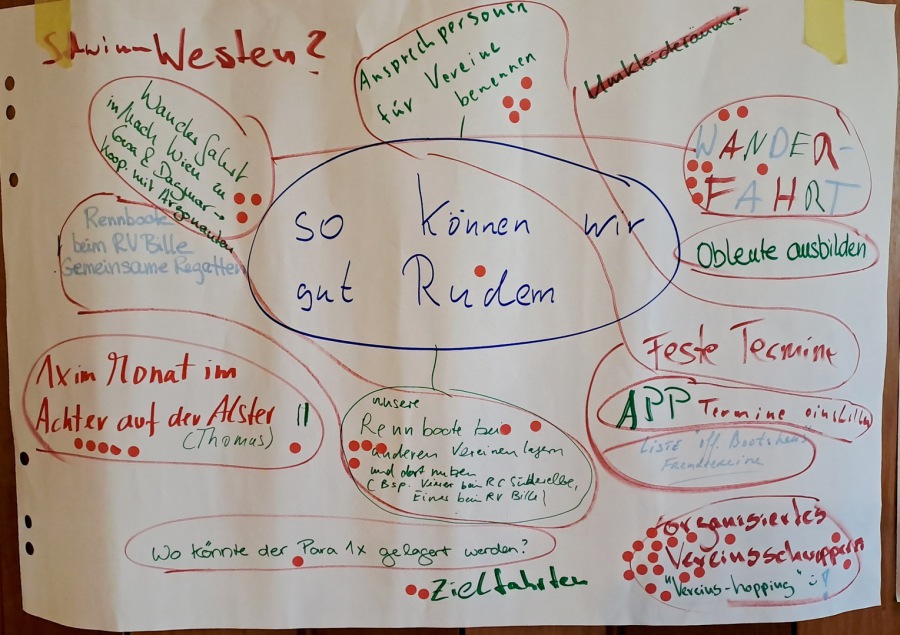 Schwimm-Westen?
Ansprechpersonen
für Vereine
benennen
Umkleideräume?
Wanderfahrt
in/nach Wien zu
Cora & Dagmar →
koop. mit Argonauten
WANDER-
FAHRT
Rennboote
beim RV Bille
Gemeinsame Regatten
so können wir
gut Rudern
Obleute ausbilden
Feste Termine
APP Termine einstellen
Liste öff. Bootshaus
Fremdvereine
1x im Monat im
Achter auf der Alster !!
(Thomas)
unsere
Rennboote bei
anderen Vereinen lagern
und dort nutzen
(Bsp. Vierer beim RC Süderelbe,
Einer beim RV Bille)
Wo könnte der Para 1x gelagert werden?
Zielfahrten
organisiertes
Vereinsschnuppern
"Vereins-hopping" :-) !